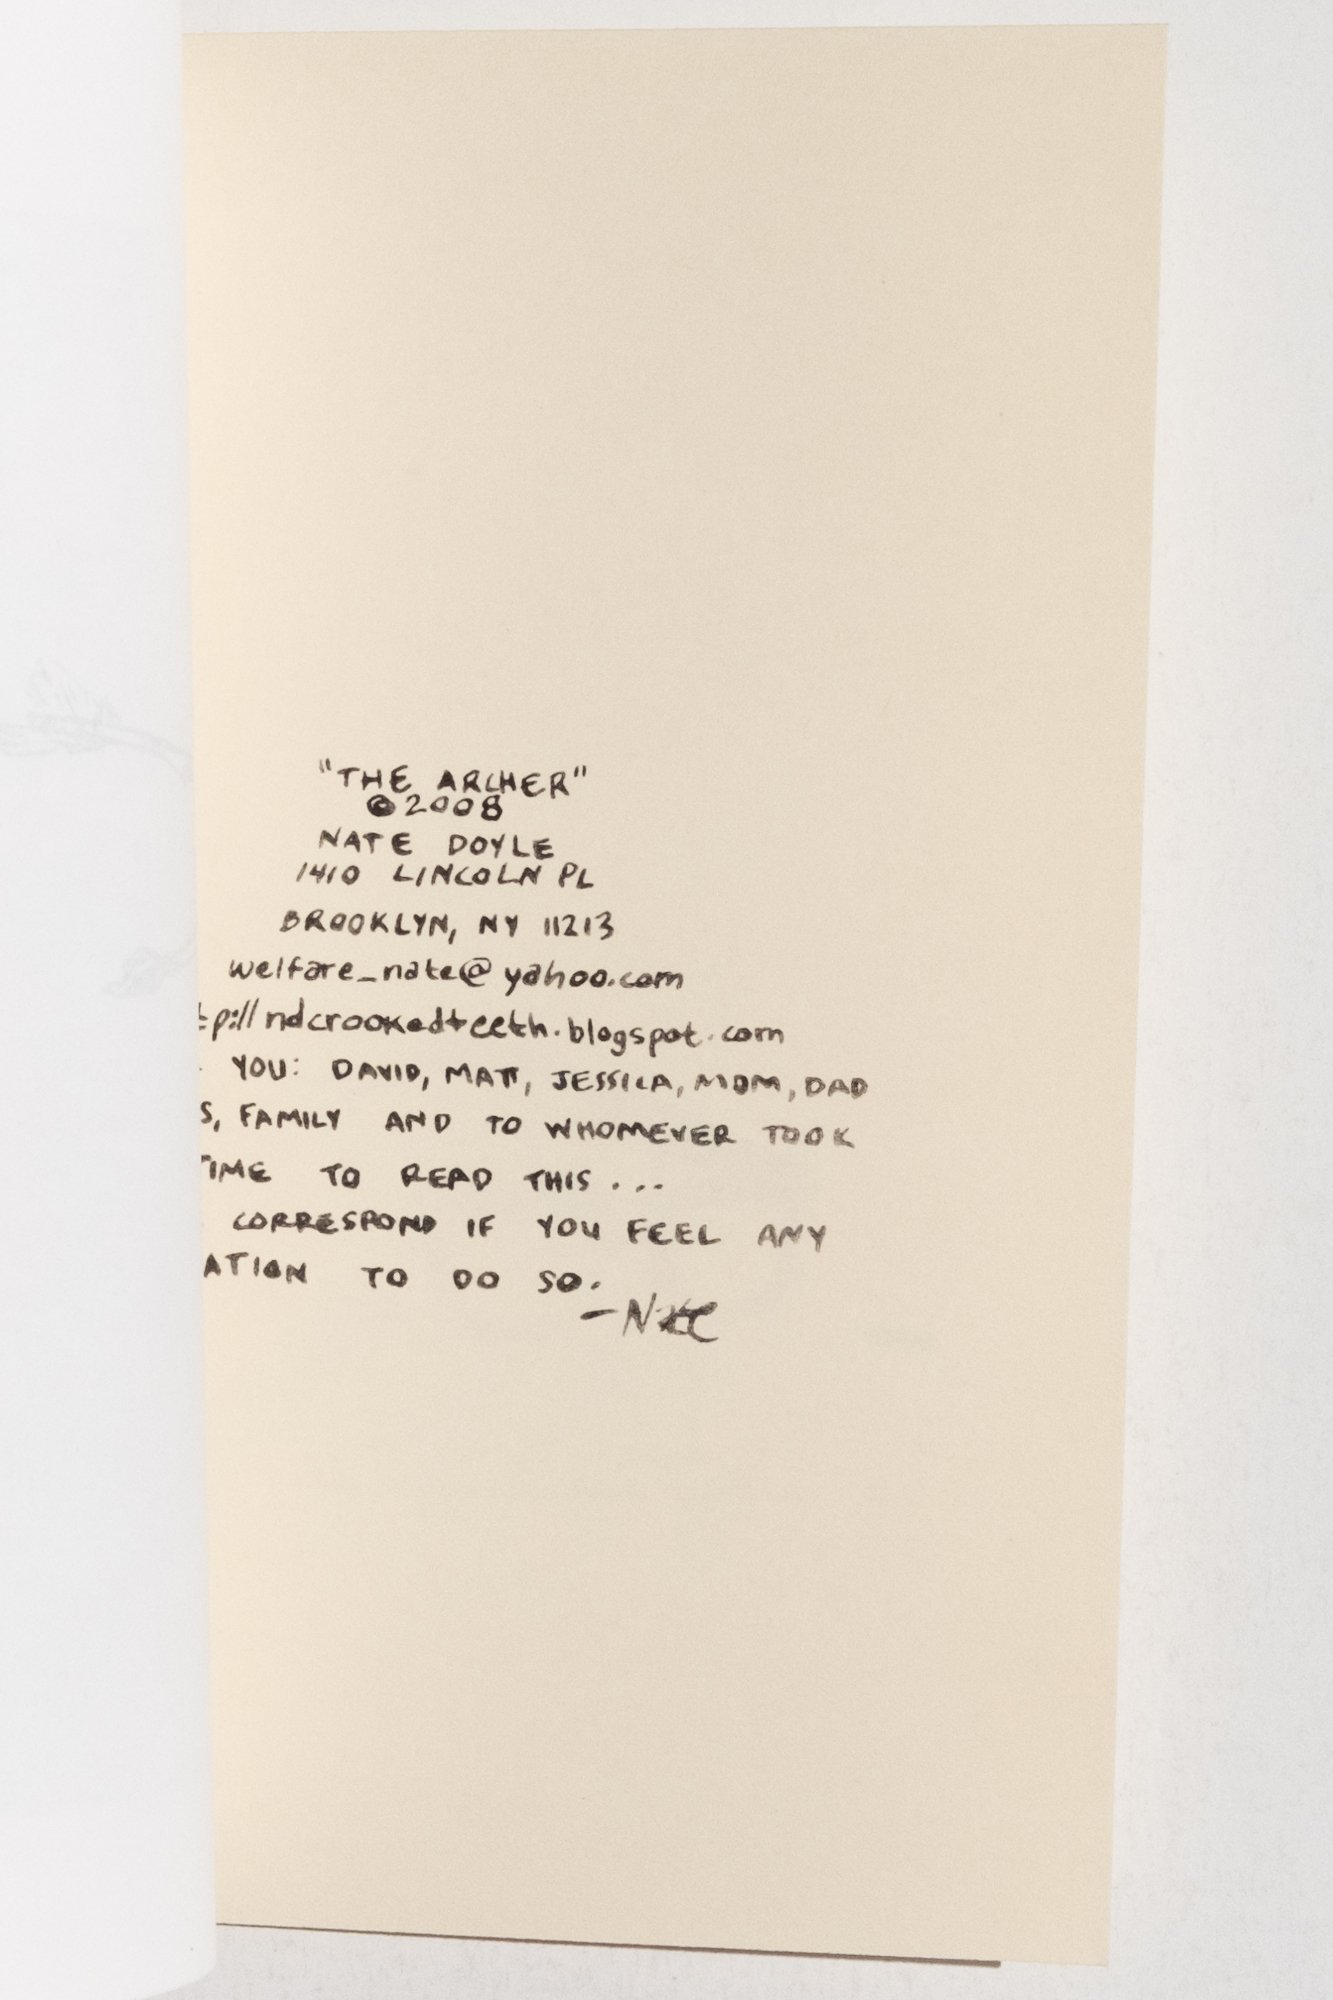 "THE ARCHER"
©2008
NATE DOYLE
1410 LINCOLN PL
BROOKLYN, NY 11213
welfare_nate@yahoo.com
tp://ndcrookedteeth.blogspot.com
YOU: DAVID, MATT, JESSICA, MOM, DAD
S, FAMILY AND TO WHOMEVER TOOK
TIME TO READ THIS...
CORRESPOND IF YOU FEEL ANY
ATION TO DO SO.
-Nate